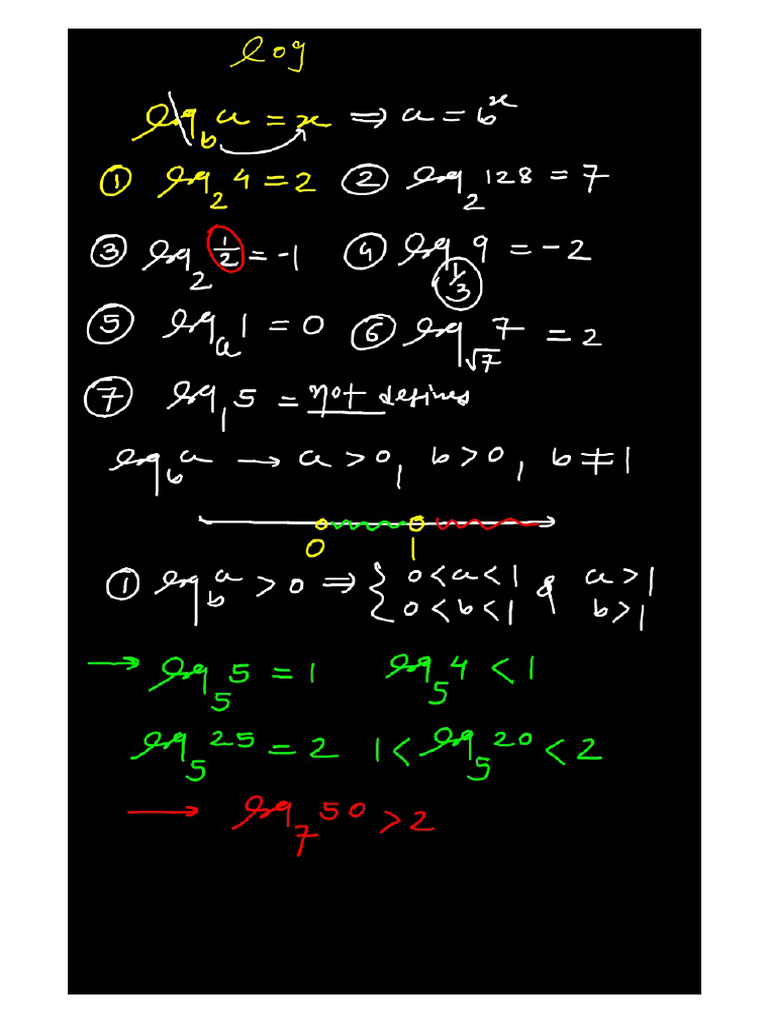 log
log_b a = x ⇒ a = b^x
① log_2 4 = 2 ② log_2 128 = 7
③ log_2 1/2 = -1 ④ log_1/3 9 = -2
⑤ log_a 1 = 0 ⑥ log_√7 7 = 2
⑦ log_1 5 = not defined
log_b a → a > 0, b > 0, b ≠ 1
0 1
① log_b a > 0 ⇒ { 0 < a < 1 & a > 1
0 < b < 1 b > 1
→ log_5 5 = 1 log_5 4 < 1
log_5 25 = 2 1 < log_5 20 < 2
→ log_7 50 > 2